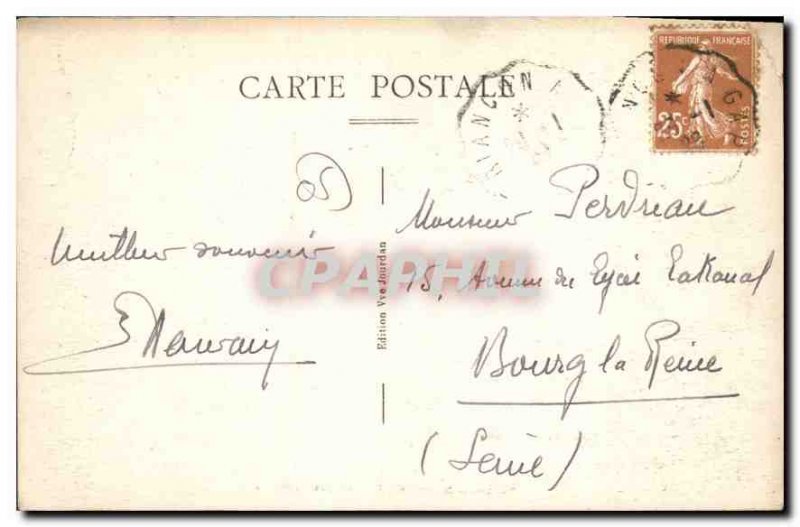 CARTE POSTALE
REPUBLIQUE FRANÇAISE
25c
POSTES
BRIANÇON
GAP
05
souvenir
Edition Vve Jourdan
CPAPHIL
Monsieur Perdriau
15, Avenue du Lycée Lakanal
Bourg la Reine
(Seine)